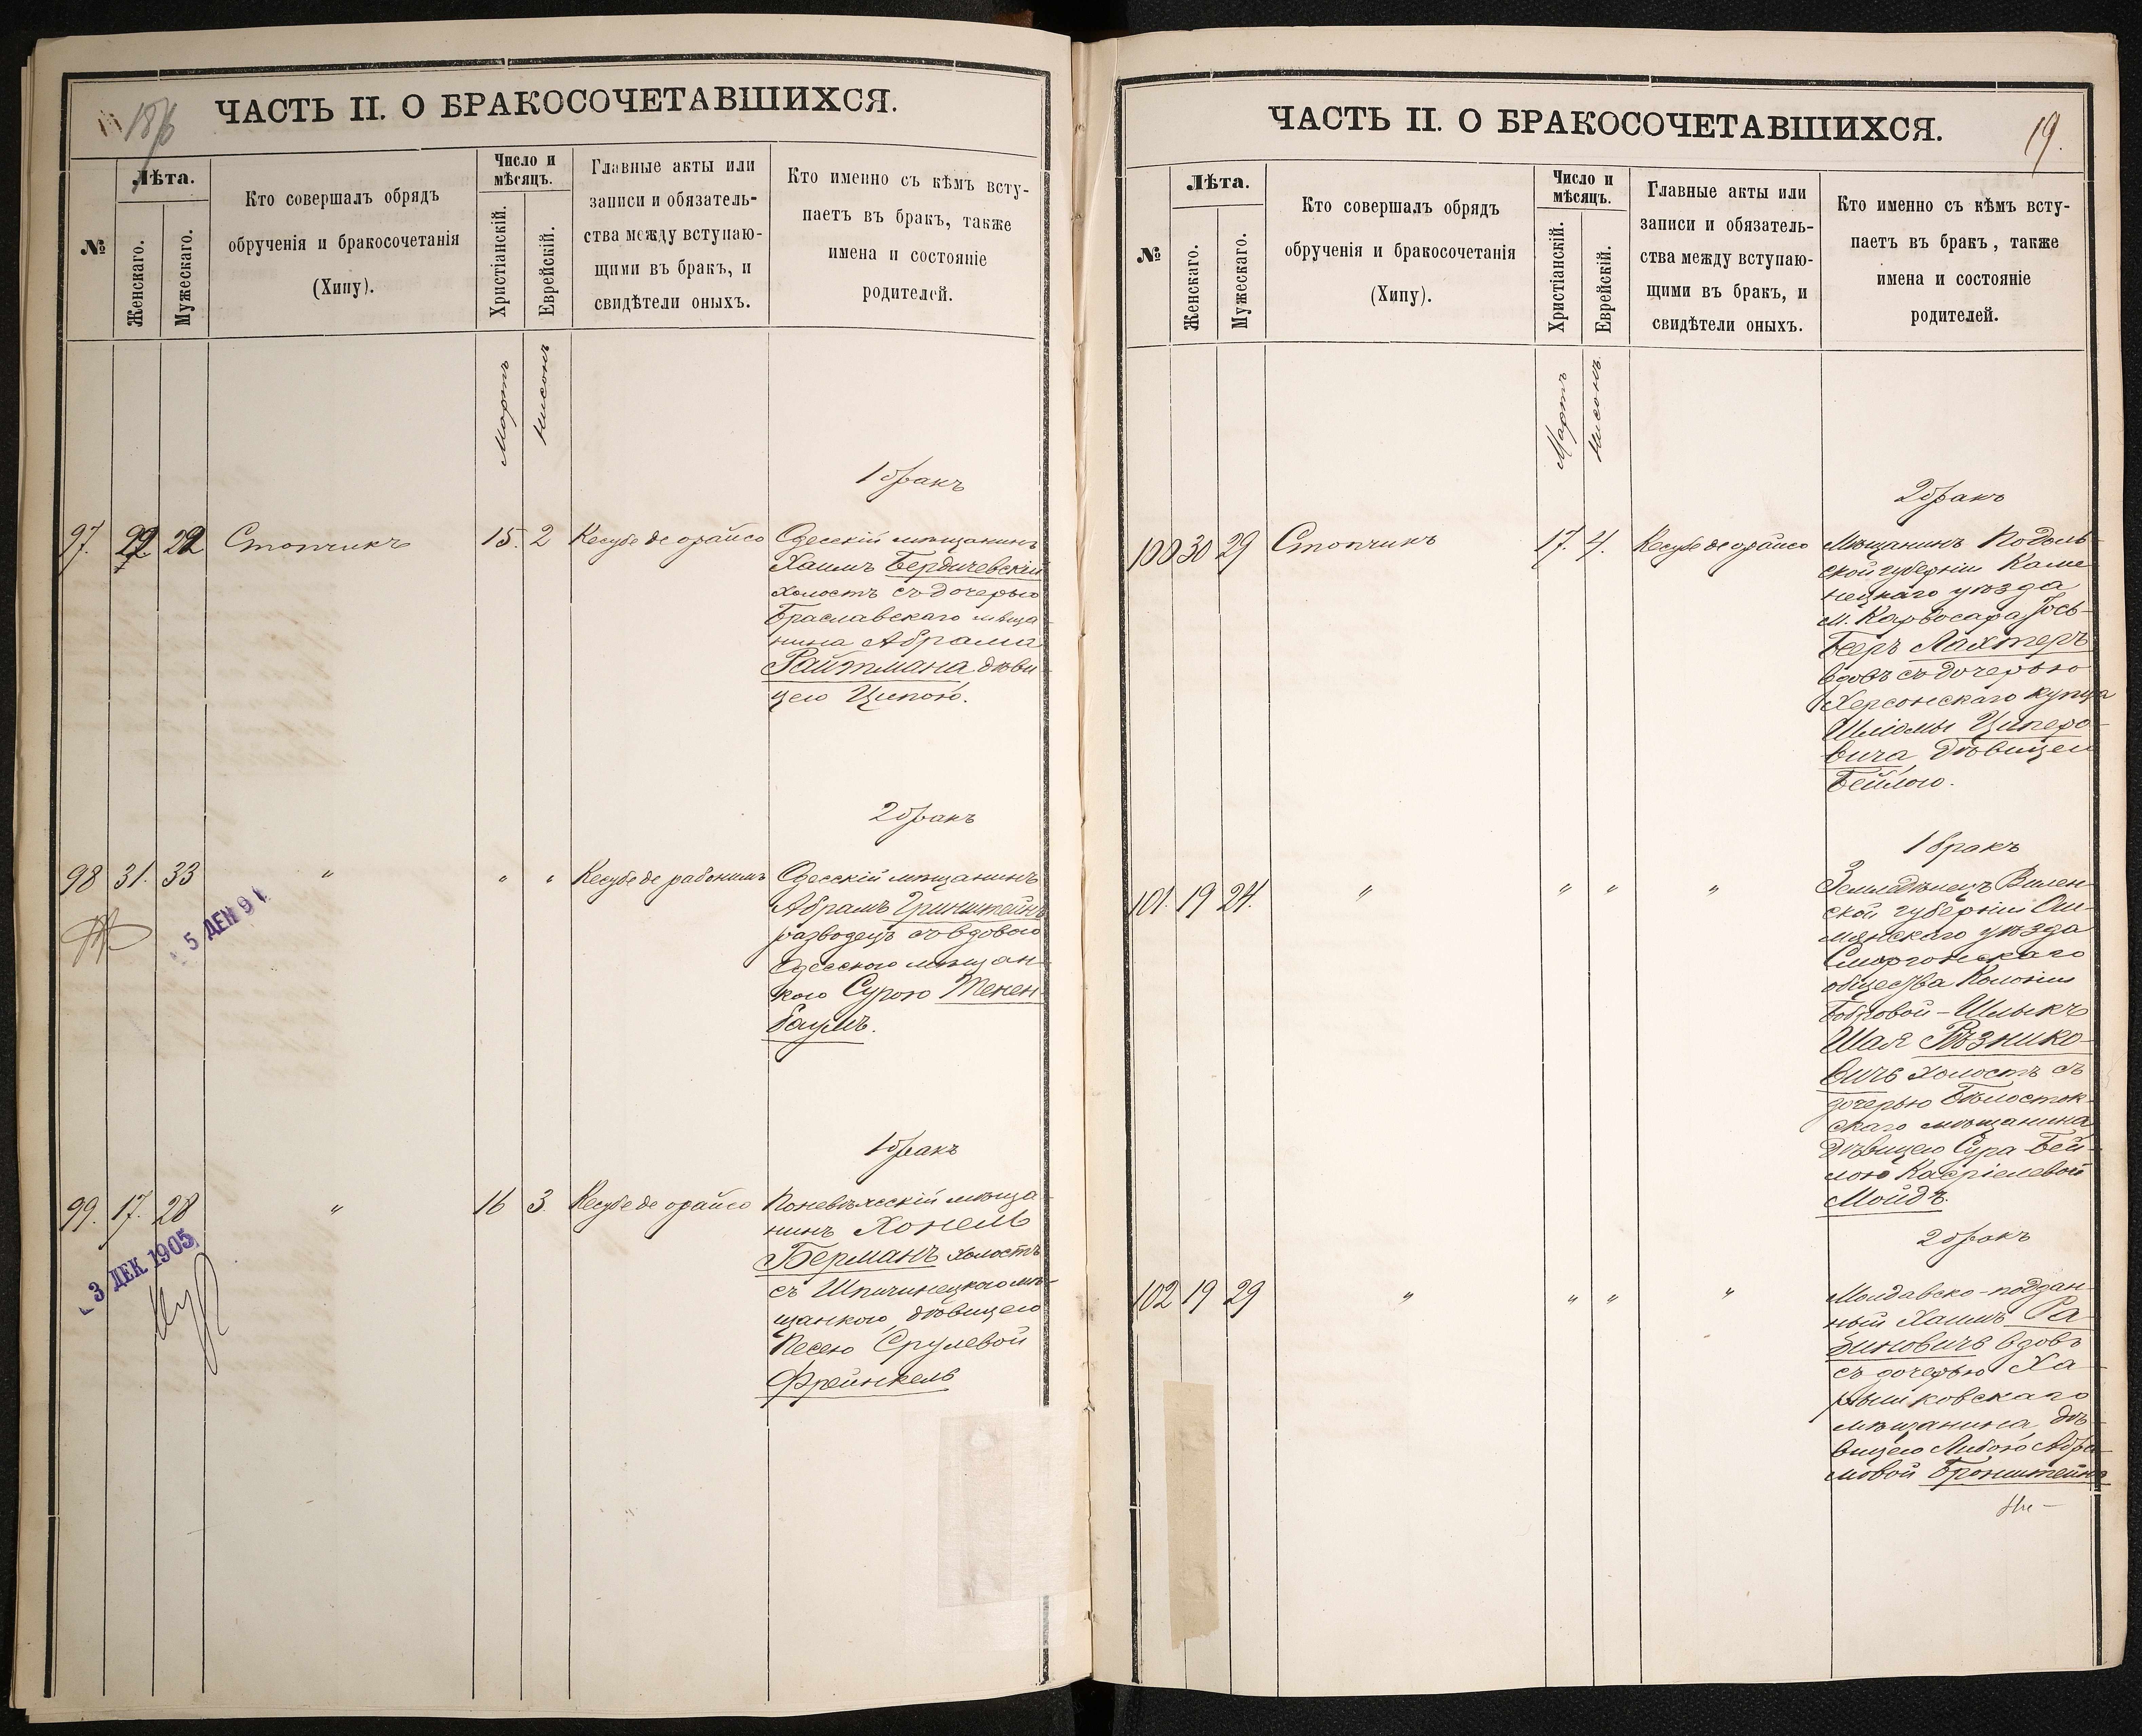 ЧАСТЬ II. О БРАКОСОЧЕТАВШИХСЯ.
№
Лѣта.
Женскаго.
Мужескаго.
Кто совершалъ обрядъ
обрученія и бракосочетанія
(Хипу).
Число и
мѣсяцъ.
Христіанскій.
Еврейскій.
Главные акты или
записи и обязатель-
ства между вступаю-
щими въ бракъ, и
свидѣтели оныхъ.
Кто именно съ кѣмъ всту-
паетъ въ бракъ, также
имена и состояніе
родителей.
Мартъ
Нисонъ
1 бракъ
97. 22 22 Стопчикъ 15. 2 Кесубе де орайсо Одесскій мѣщанинъ
Хаимъ Бердичевскій
холостъ съ дочерью
Браславскаго мѣща-
нина Абрама
Райтмана дѣви-
цею Ципою.
2 бракъ
98 31. 33 " " " Кесубе де рабонимъ Одесскій мѣщанинъ
Абрамъ Гринштейнъ
разводецъ съ вдовою
Одесскою мѣщан-
кою Сурою Тенен-
баумъ.
5 ДЕН 9
1 бракъ
99. 17. 28 " 16 3 Кесубе де орайсо Поневѣжскій мѣща-
нинъ Хонель
Берманъ холостъ
съ Шпичинецкою мѣ-
щанкою дѣвицею
Песею Срулевой
Френкель
3 ДЕК 1905
ЧАСТЬ II. О БРАКОСОЧЕТАВШИХСЯ.
19.
№
Лѣта.
Женскаго.
Мужескаго.
Кто совершалъ обрядъ
обрученія и бракосочетанія
(Хипу).
Число и
мѣсяцъ.
Христіанскій.
Еврейскій.
Главные акты или
записи и обязатель-
ства между вступаю-
щими въ бракъ, и
свидѣтели оныхъ.
Кто именно съ кѣмъ всту-
паетъ въ бракъ, также
имена и состояніе
родителей.
Мартъ
Нисонъ
2 бракъ
100 30 29 Стопчикъ 17. 4. Кесубе де орайсо Мѣщанинъ Подоль-
ской губерніи Каме-
нецкаго уѣзда
м. Карвосара Іось-
Беръ Лахтеръ
вдовъ съ дочерью
Херсонскаго купца
Шліомы Циперо-
вича дѣвицею
Бейлою.
1 бракъ
101. 19 24. " " " " Земледѣлецъ Вилен-
ской губерніи Ош-
мянскаго уѣзда
Сморгонскаго
общества Колоніи
Бобровой - Шлыкъ
Шая Рѣзнико-
вичъ холостъ съ
дочерью Бѣлосток-
скаго мѣщанина
дѣвицею Сура-Бей-
лою Касріелевой
Мойдъ.
2 бракъ
102 19 29 " " " " Молдавско-поддан-
ный Хаимъ Ра-
биновичъ вдовъ
съ дочерью Ха-
мѣщанина дѣ-
вицею Либою Абра-
мовой Бронштейнъ